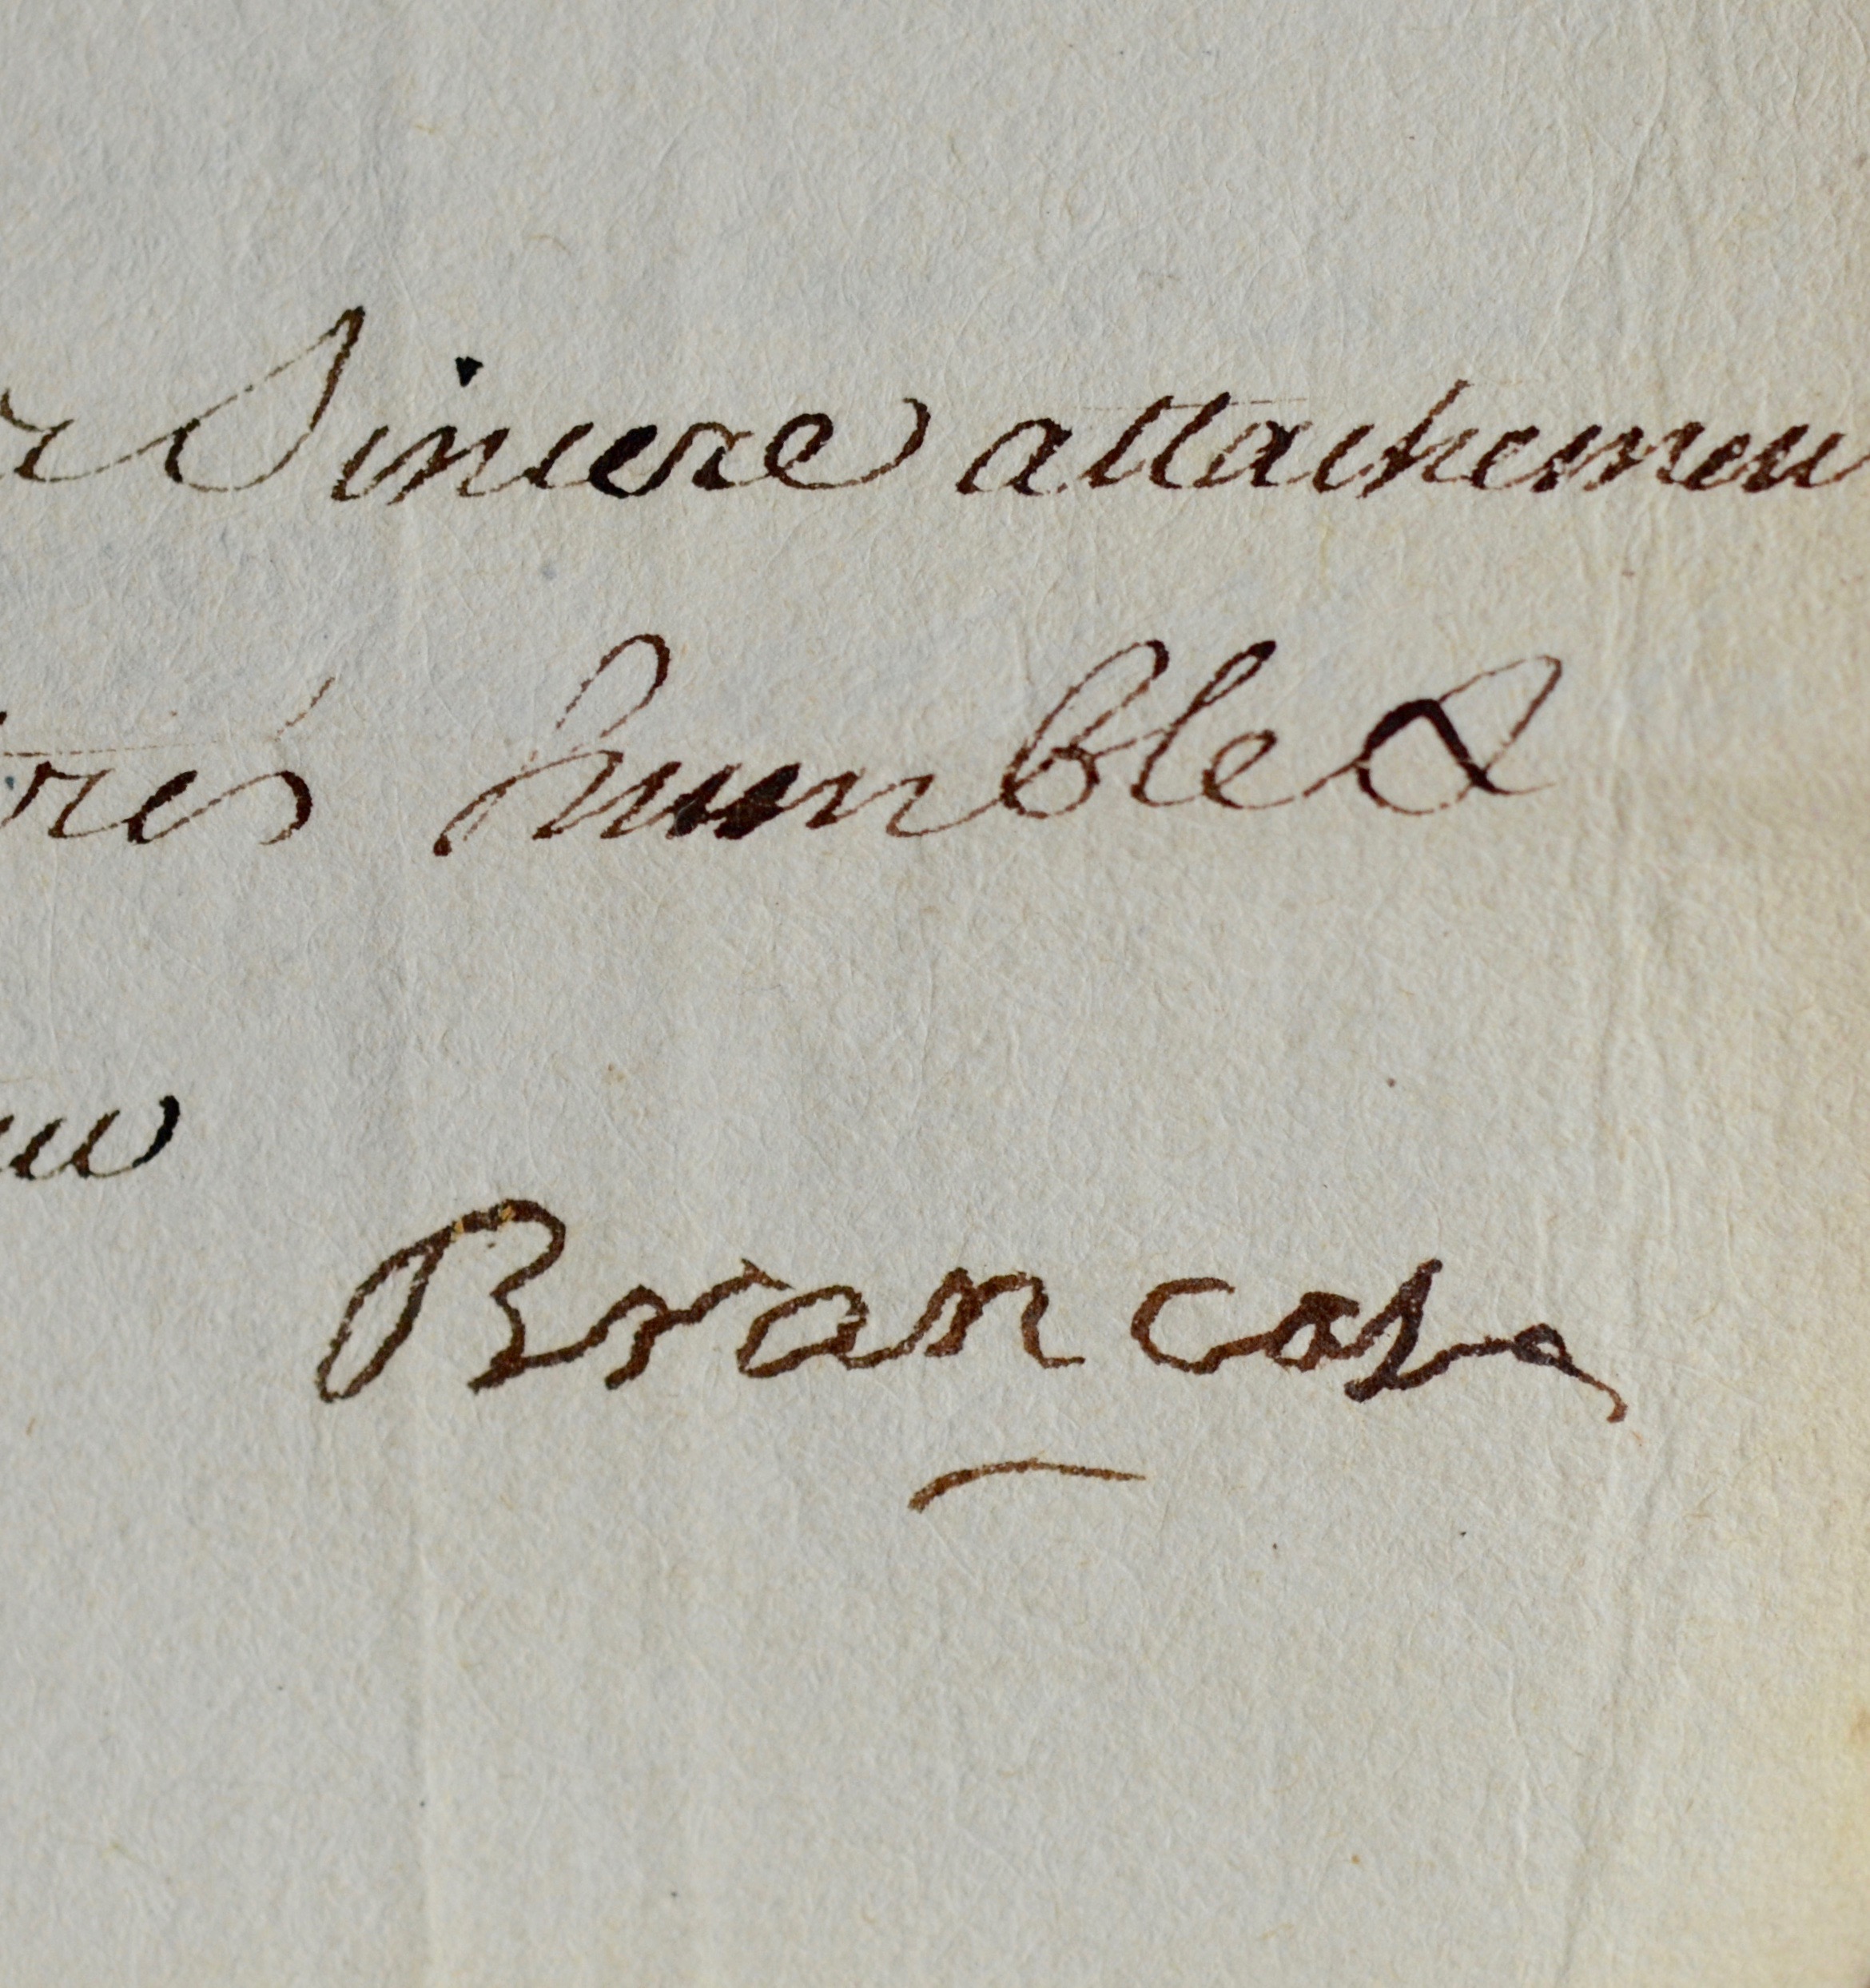 Sincere attachemen
tres humble &
Brancas